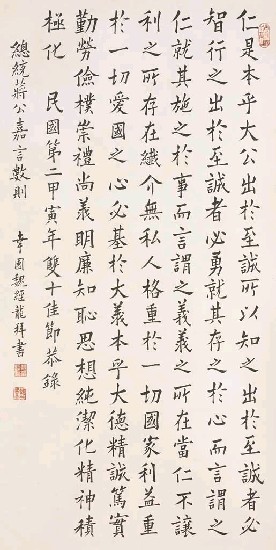 仁是本乎大公出於至誠所以知之出於至誠者必
智行之出於至誠者必勇就其存之於心而言謂之
仁就其施之於事而言謂之義義之所在當仁不讓
利之所存在纖介無私人格重於一切國家利益重
於一切愛國之心必基於大義本乎大德精誠篤實
勤勞儉樸崇禮尚義明廉知恥思想純潔化精神積
極化 民國第二甲寅年雙十佳節恭錄
總統蔣公嘉言數則
幸園魏經龍拜書